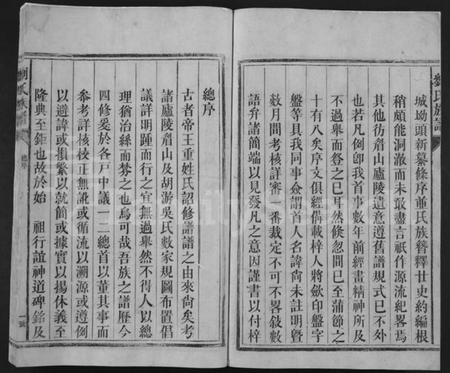 劉氏族譜
城坳頭新纂條序董氏族簪釋廿史約編根
稍頗能洞澈而未敢盡言祇作源流紀畧焉
其他彷眉山廬陵遺意遵舊譜規式已不外
也凡有例卽我首事數年前經畫精神所及
不過舉而詧之已耳然倏忽間已至蒲節之
十有八矣序文俱經倡載梓人將歘印盤字
盤等具我同事僉謂首人名諱尚未註明暨
數月間考核詳審一番裁定不可不畧敘數
語弁諸簡端以見發凡之意因謹書以付梓
總序
古者帝王重姓氏詔修譜譜之由來尚矣考
諸廬陵眉山及胡游吳氏數家規圖布置倡
議詳明踵而行之宜無過舉然不得人以總
理猶治絲而棼之也烏可哉吾族之譜歷今
四修爰於各戸中議一二總首以董其事而
參考詳核校正無訛或循流以溯源或遵例
以避諱或損繁以就簡或據實以揚休義至
隆典至鉅也故於始 祖行誼神道碑銘及
總序
一號